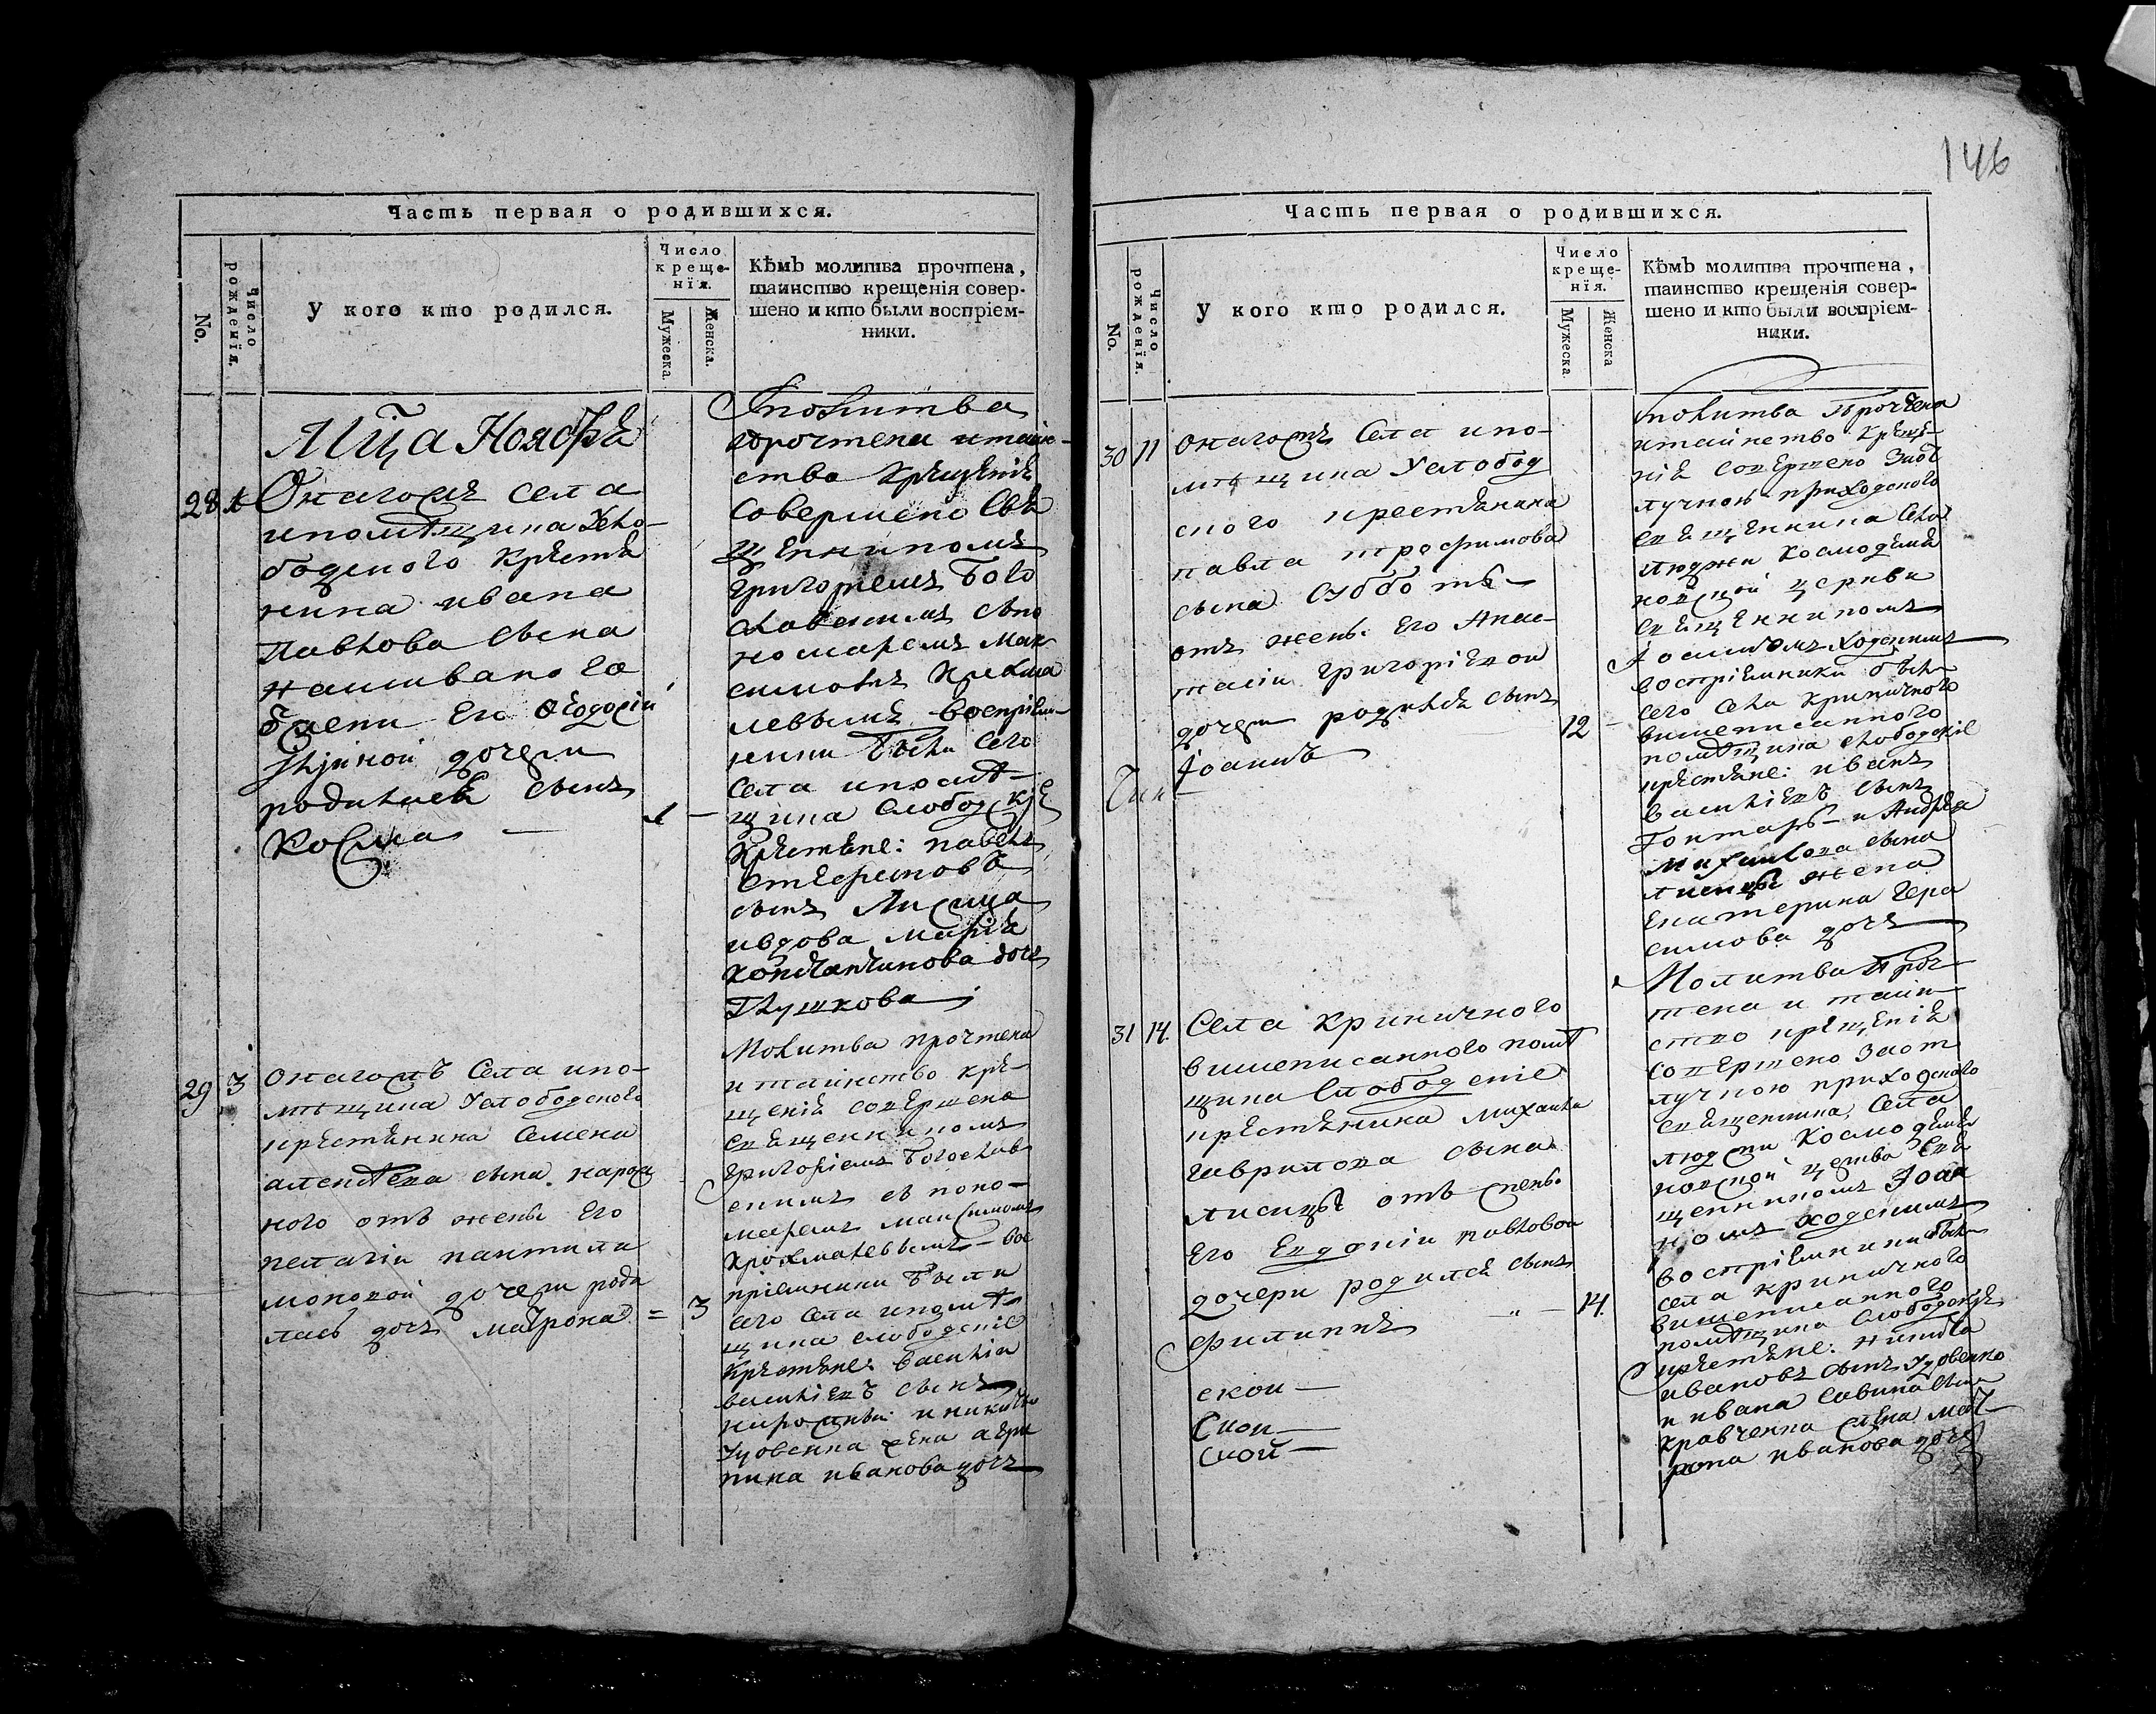 146
Часть первая о родившихся.
No.
Число рожденїя.
У кого кто родился.
Число креще-нїя.
Мужеска.
Женска.
Кѣмъ молитва прочтена,
таинство крещенїя совер-
шено и кто были воспрїем-
ники.
Мца Ноября
28 1 Онагожъ села
и помѣщика
бодского крестя
нина ивана
Павлова сына
его Ѳеодосіи
дочери
родился сынъ
Косма 1
Молитва
прочтена и таин-
ство крещенія
Совершено Свя
щенникомъ
Григоріемъ Бого
славскимъ съ по
номаремъ Мак
симомъ
воспріем-
ники были сего
села и помѣ-
щика Слободскіе
Крестяне: павелъ
сынъ Лисица
и вдова Марія
Константинова дочь
Глушкова
29 3 Онагожъ Села и по-
мѣщика Услободского
крестянина Семена
сына
ного отъ жены Его
пелагіи пантили
моновой дочери роди
лась дочь Матрона = 3
Молитва прочтена
и таинство кре-
щенія совершено
священникомъ
Григоріемъ Богослав
скимъ съ поно-
маремъ Максимомъ
вос
пріемники были
сего села и помѣ-
щика слободскіе
Крестяне: Василій
василіевъ сынъ
и никиты
Удовенка жена агри
пина иванова дочь
Часть первая о родившихся.
No.
Число рожденїя.
У кого кто родился.
Число креще-нїя.
Мужеска.
Женска
Кѣмъ молитва прочтена,
таинство крещенїя совер-
шено и кто были воспрїем-
ники.
30 11 Онагожъ Села и по-
мѣщика Услобод
ского крестянина
павла трофимова
сына Субботы
отъ жены Его Анас-
тасіи григоріевои
дочери родился сынъ 12
Іоаннъ
Молитва Прочтена
и таинство Креще-
нія совершено заот
лучкою приходского
священника Села
Люджи Космодемя
новской церкви
священникомъ
Іоанномъ Ходскимъ
воспріемники были
сего села Криничного
вишеписанного
помѣщика слободскіе
крестяне: иванъ
василіевъ сынъ
Гонтарь и Андрея
Михаилова сына
лисицы жена
Екатерина Гера
симова дочь
31 14. Села Криничного
вишеписанного помѣ
щика Слободскіе
крестянина Михаила
гаврилова сына
лисицы отъ жены
Его Евдокіи павловои
дочери родился сынъ
филиппъ 14.
ской
Ской
Ской
Молитва Проч-
тена и таин-
ство крещенія
совершено Заот
лучкою приходского
священника Села
люджи Космодемя
новской церкви Свя
щенникомъ Іоан
номъ ходскимъ
воспріемники были
села криничного
вишеписанного
помѣщика Слободскіе
крестяне: никита
ивановъ сынъ Удовенко
и ивана Савина сына
Кравченка жена Мат
рона иванова дочь